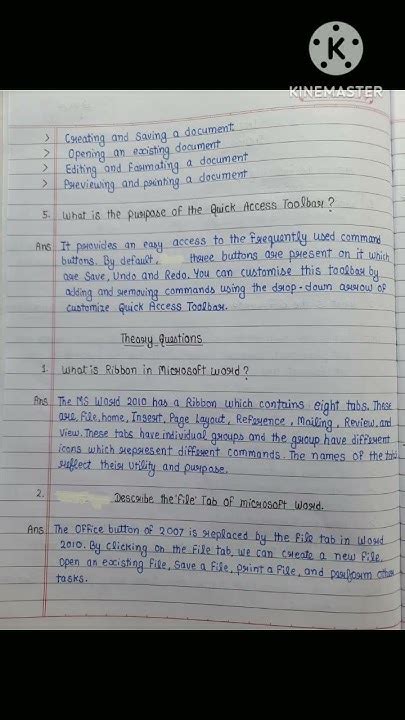 K
KINEMASTER
> Creating and Saving a document
> Opening an existing document
> Editing and Formating a document
> Previewing and printing a document
5. What is the purpose of the Quick Access Toolbar?
Ans It provides an easy access to the frequently used command
buttons. By default, three buttons are present on it which
are Save, Undo and Redo. You can customise this toolbar by
adding and removing commands using the drop-down arrow of
customize Quick Access Toolbar.
Theory Questions
1. What is Ribbon in Microsoft word?
Ans The MS Word 2010 has a Ribbon which contains eight tabs. These
are File, home, Insert, Page Layout, Reference, Mailing, Review, and
View. These tabs have individual groups and the group have different
icons which represent different commands. The names of the tabs
reflect their utility and purpose.
2. Describe the 'file' Tab of microsoft Word.
Ans The Office button of 2007 is replaced by the File tab in Word
2010. By clicking on the File tab, we can create a new file,
open an existing file, save a file, print a file, and perform other
tasks.